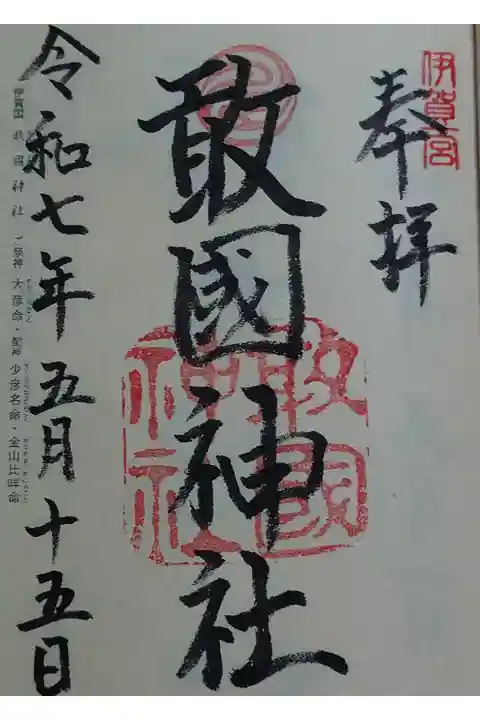 伊賀一宮
奉拝
敢國神社
敢國神社
令和七年五月十五日
伊賀国 敢國神社 ご祭神 大彦命・配神 少彦名命・金山比咩命